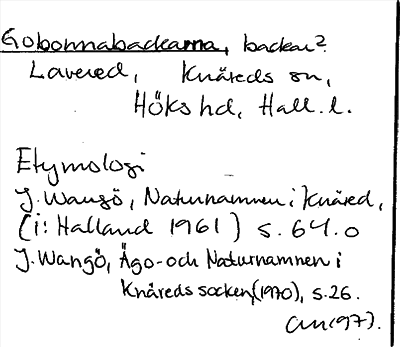 Gobonnabackarna, backar?
Lavered, Knäreds sn,
Höks hd, Hall. l.
Etymologi
J. Wangö, Naturnamnen i Knäred,
(i: Halland 1961) s. 64. o
J. Wangö, Ägo- och Naturnamnen i
Knäreds socken, (1970), s. 26.